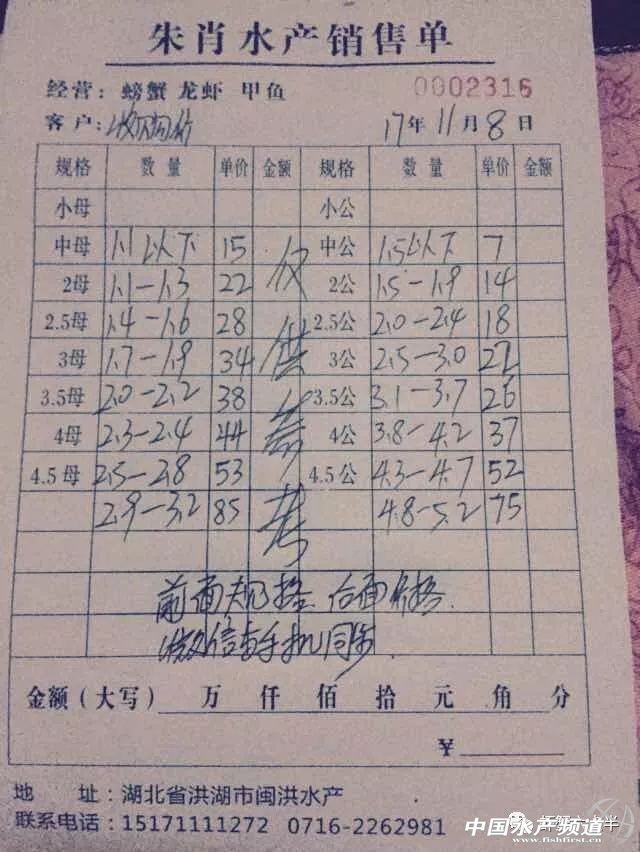 朱肖水产销售单
经营：螃蟹 龙虾 甲鱼 0002316
客户：收购价 17年11月8日
规格 数量 单价 金额 规格 数量 单价 金额
小母 小公
中母 1.1以下 15 仅 中公 1.5以下 7
2母 1.1-1.3 22 2公 1.5-1.9 14
2.5母 1.4-1.6 28 供 2.5公 2.0-2.4 18
3母 1.7-1.9 34 3公 2.5-3.0 22
3.5母 2.0-2.2 38 参 3.5公 3.1-3.7 26
4母 2.3-2.4 44 4公 3.8-4.2 37
4.5母 2.5-2.8 53 4.5公 4.3-4.7 52
2.9-3.2 85 考 4.8-5.2 75
前面规格 后面价格.
微信与手机同步.
金额（大写） 万 仟 佰 拾 元 角 分
¥
地 址：湖北省洪湖市闽洪水产
联系电话：15171111272 0716-2262981
中国水产频道
www.fishfirst.cn